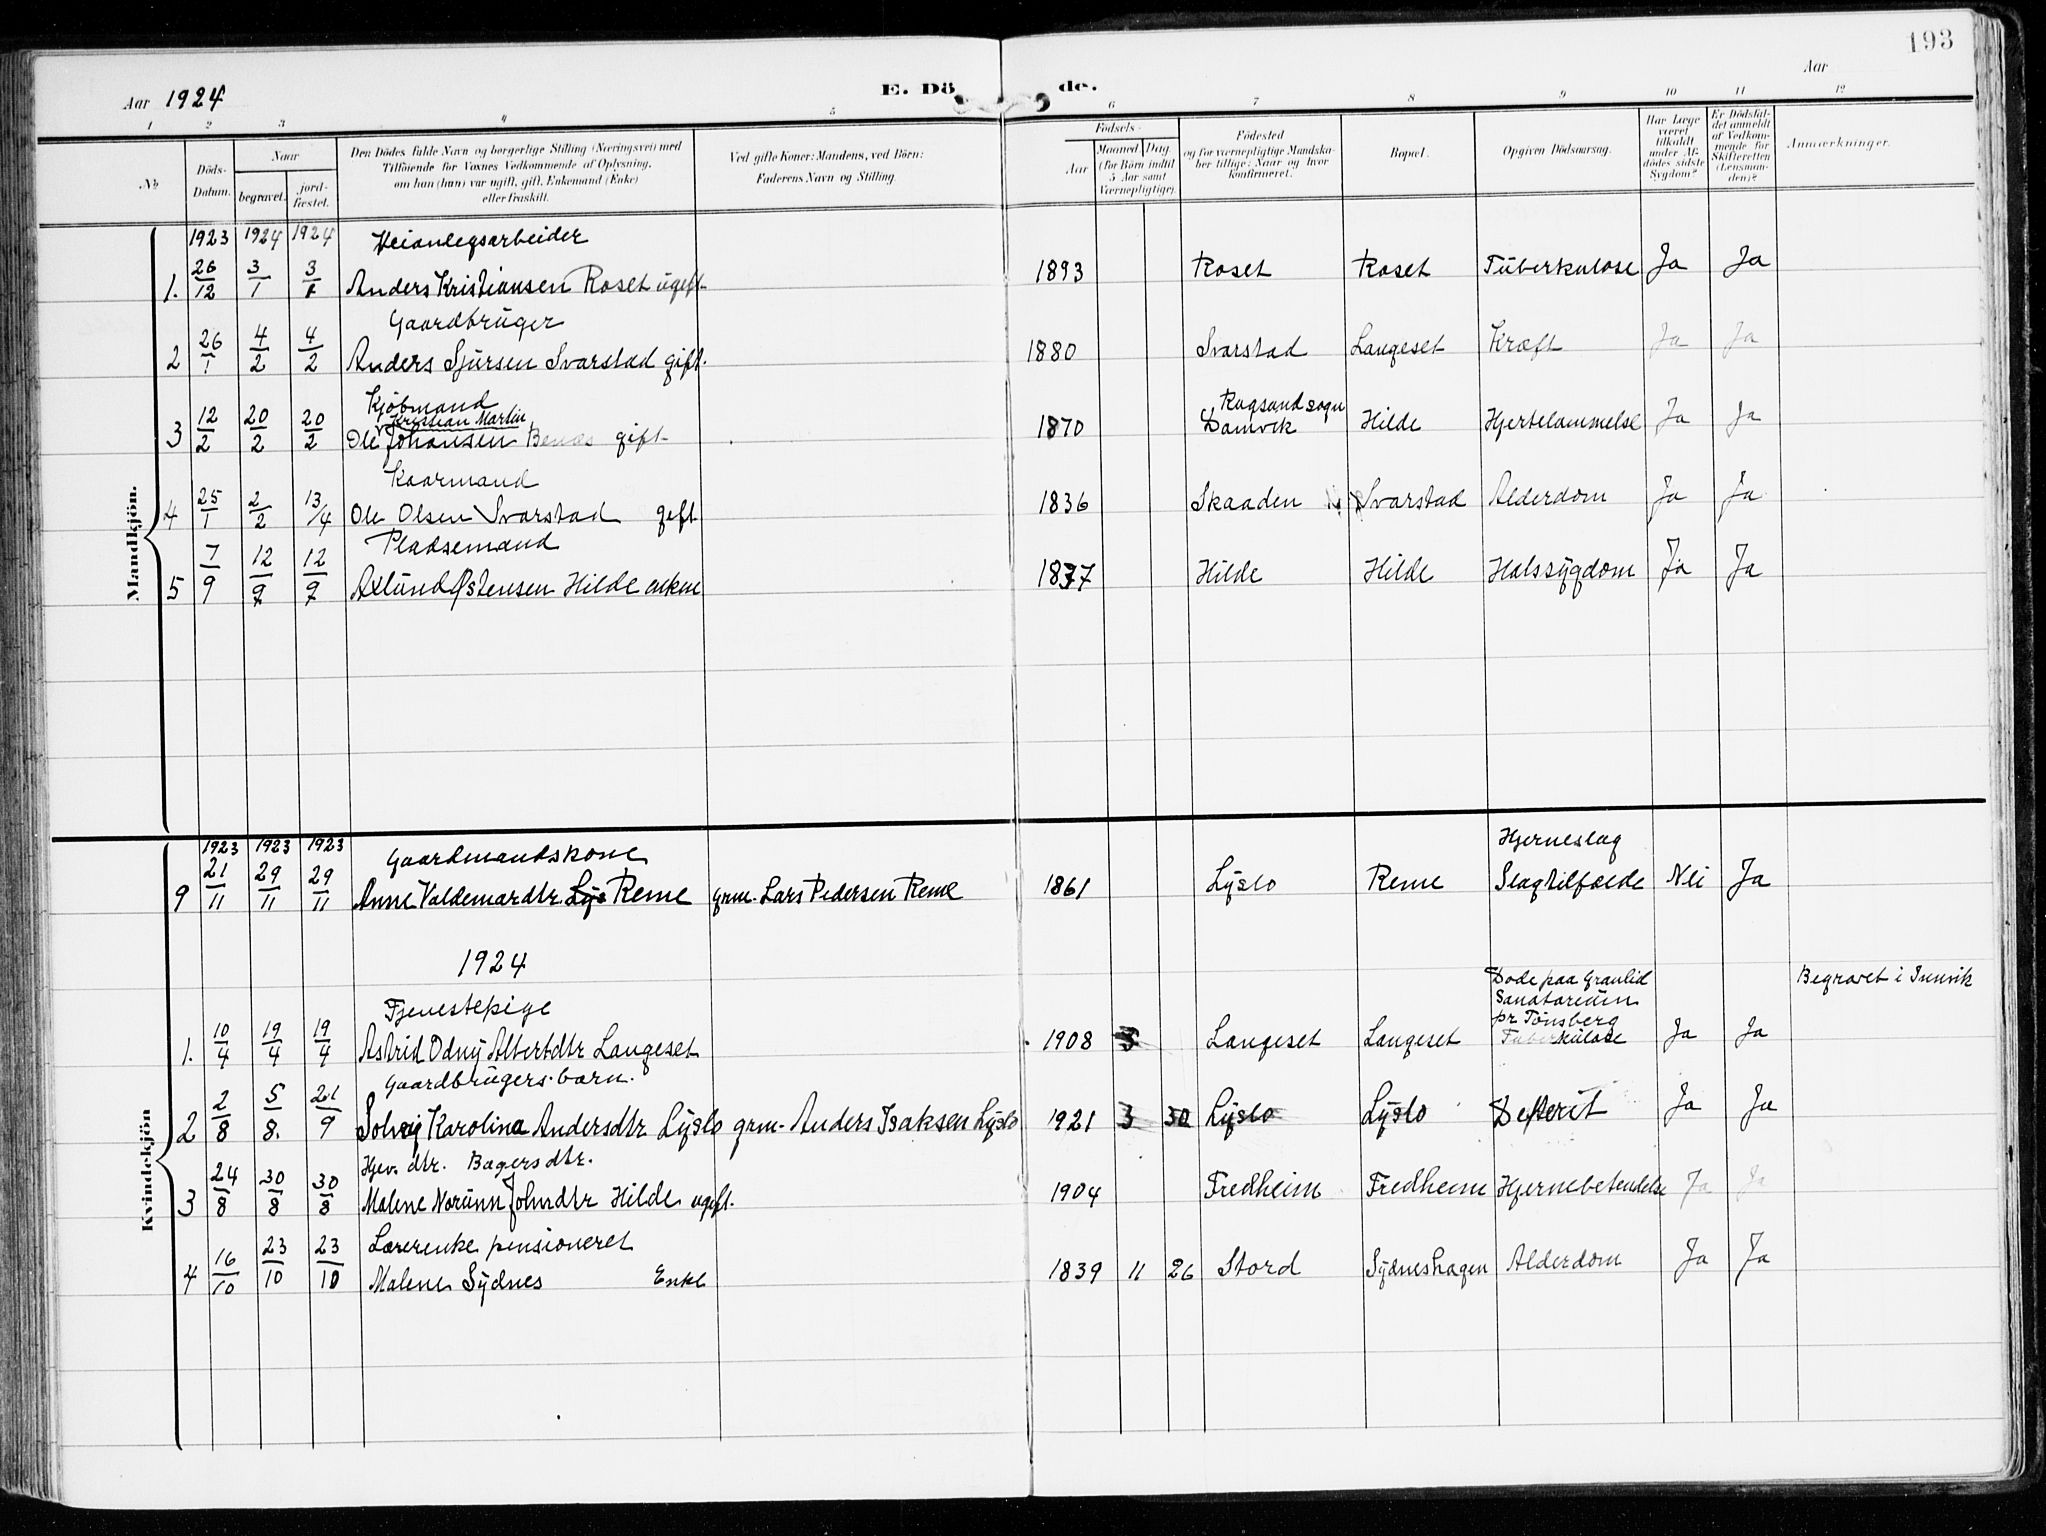 193
Aar 1924
E. Dö de.
Aar
1 2 3 4 5 6 7 8 9 10 11 12
No.
Döds-Datum.
Naar
begravet.
jord-fæstet.
Den Dödes fulde Navn og borgerlige Stilling (Næringsvei) med
Tilföiende for Voxnes Vedkommende af Oplysning,
om han (hun) var ugift, gift, Enkemand (Enke)
eller fraskilt.
Ved gifte Koner: Mandens, ved Börn:
Faderens Navn og Stilling
Födsels-
Aar
Maaned. Dag.
(for Börn indtil
5 Aar samt
Værnepligtige).
Födested
og for værnepligtige Mandska-
ber tillige: Naar og hvor
konfirmeret.
Bopæl.
Opgiven Dödsaarsag.
Har Læge
været
tilkaldt
under Af-
dødes sidste
Sygdom?
Er Dödsfal-
det anmeldt
af Vedkom-
mende for
Skifteretten
(Lensman-
den)?
Anmærkninger.
Mandkjön.
1923 1924 1924 Veianlegsarbeider
1. 26/12 3/1 3/1 Anders Kristiansen Roset ugift. 1893 Roset Roset Tuberkulose Ja Ja
Gaardbruger
2 26/1 4/2 4/2 Anders Sjursen Svarstad gift. 1880 Svarstad Langeset Kræft Ja Ja
Kjöbmand
Kristian Martin
Rugsund sogn
3 12/2 20/2 20/2 Ole Johansen Benæs gift. 1870 Damvik Hilde Hjertelammelse Ja Ja
Kaarmand
4 25/1 2/2 13/4 Ole Olsen Svarstad gift 1836 Skaaden Svarstad Alderdom Ja Ja
Pladsemand
5 7/9 12/9 12/9 Østensen Hilde enkem 1837 Hilde Hilde Halssygdom Ja Ja
Kvindekjön
1923 1923 1923 Gaardmandskone Hjerneslag
9 21/11 29/11 29/11 Anne Valdemardtr Lys Reme grm. Lars Pedersen Reme 1861 Lyslo Reme Slagtilfælde Nei Ja
1924
Tjenestepige
Døde paa Granlid
Sanatorium
pr Tønsberg
Begravet i Innvik
1. 10/4 19/4 19/4 Astrid Odny Albertdtr Langeset 1908 Langeset Langeset Tuberkulose Ja Ja
Gaardbrugers barn.
2 2/8 5/8. 21/9 Solveig Karolina Andersdtr Lyslo grm. Anders Isaksen Lyslo 1921 3 30 Lyslo Lyslo Defterit Ja Ja
Hjev. dtr. Bagersdtr.
3 24/8 30/8 30/8 Malene Norunn Johndtr Hilde ugift. 1904 Fredheim Fredheim Hjernebetendelse Ja Ja
Lærerenke pensioneret
4 16/10 23/10 23/10 Malene Sydnes Enke 1839 11 26 Stord Sydneshagen Alderdom Ja Ja